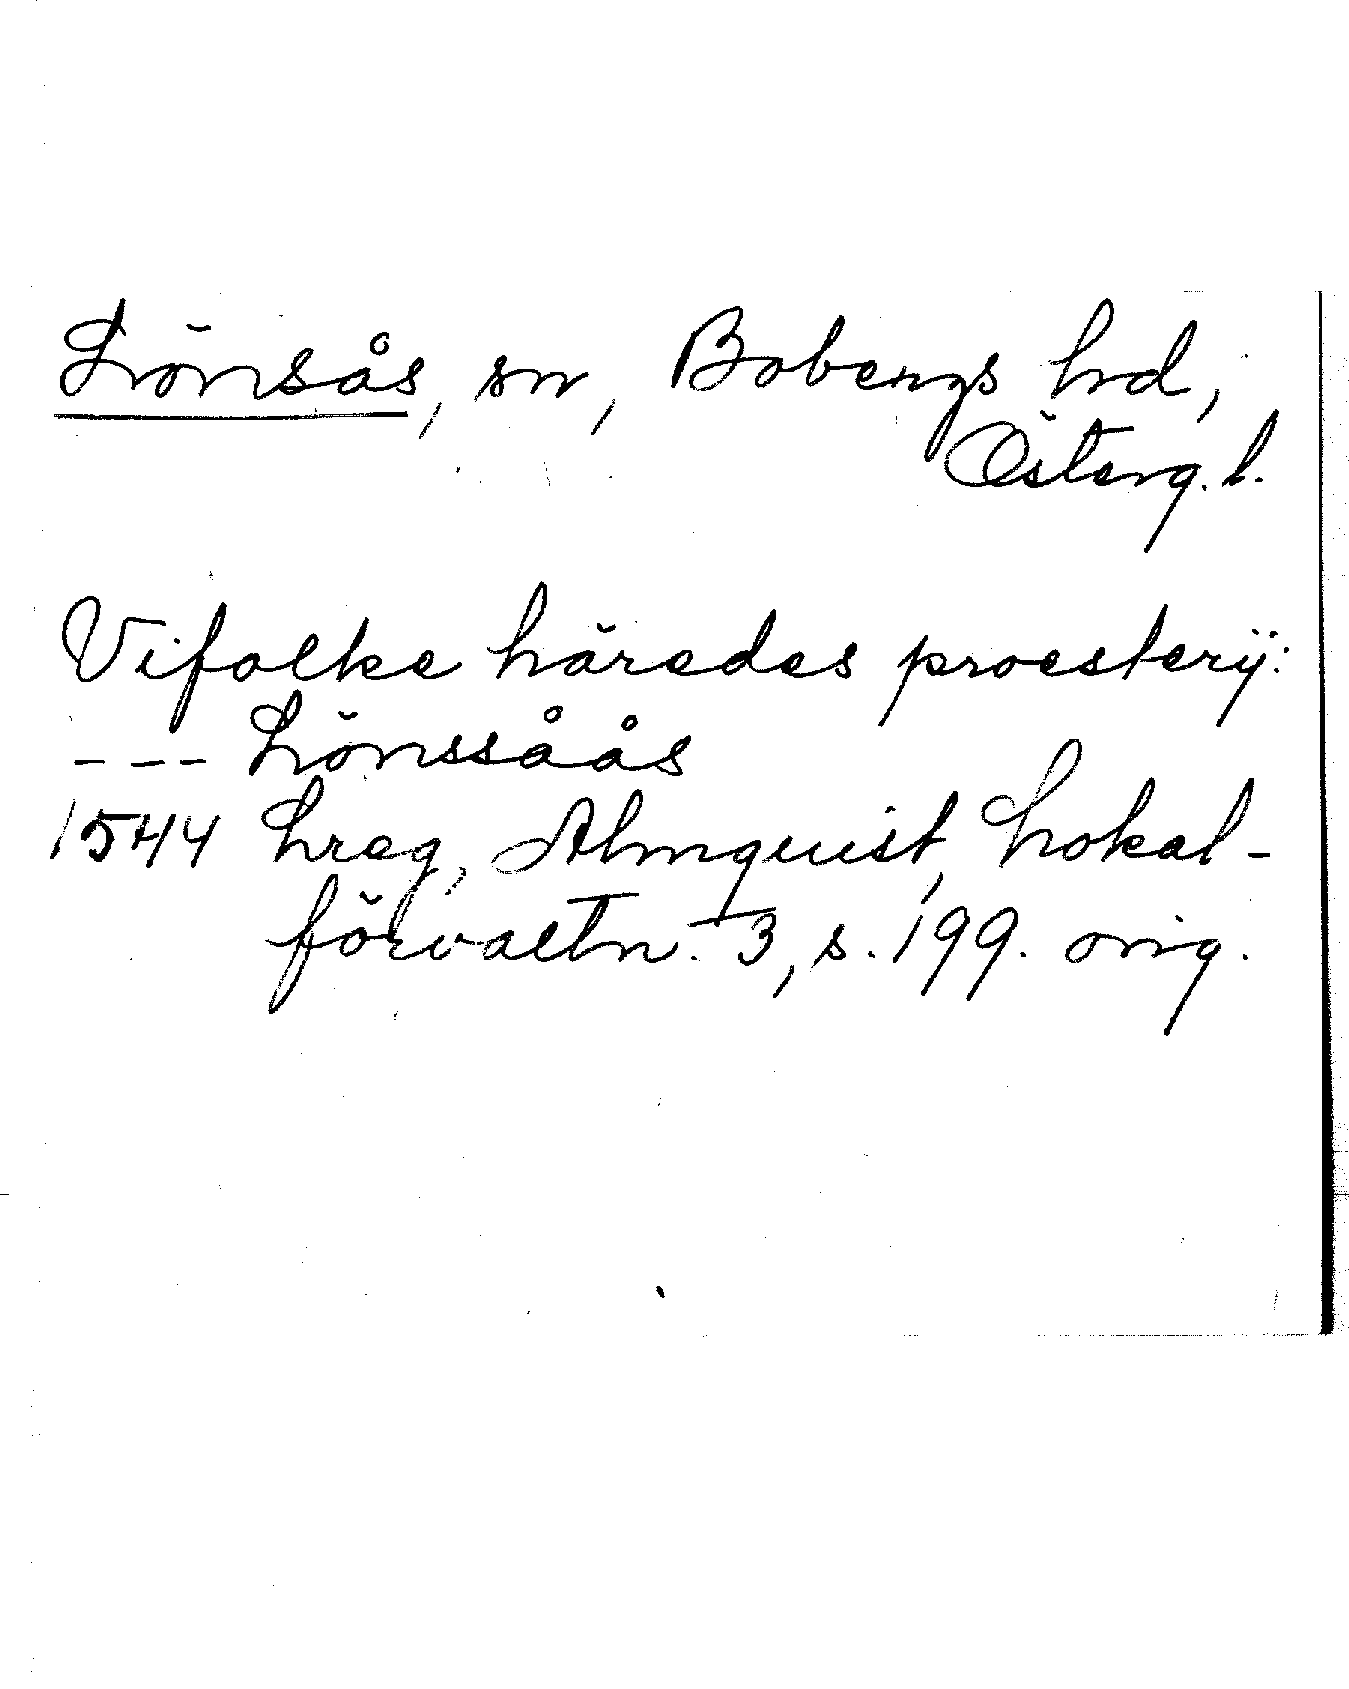 Lönsås, sn, Bobergs hrd,
Österg. l.
Vifolke häredes proesterij:
--- Lönssåås
1544 Lreg, Almquist, Lokal-
förvaltn. 3, s. 199. orig.